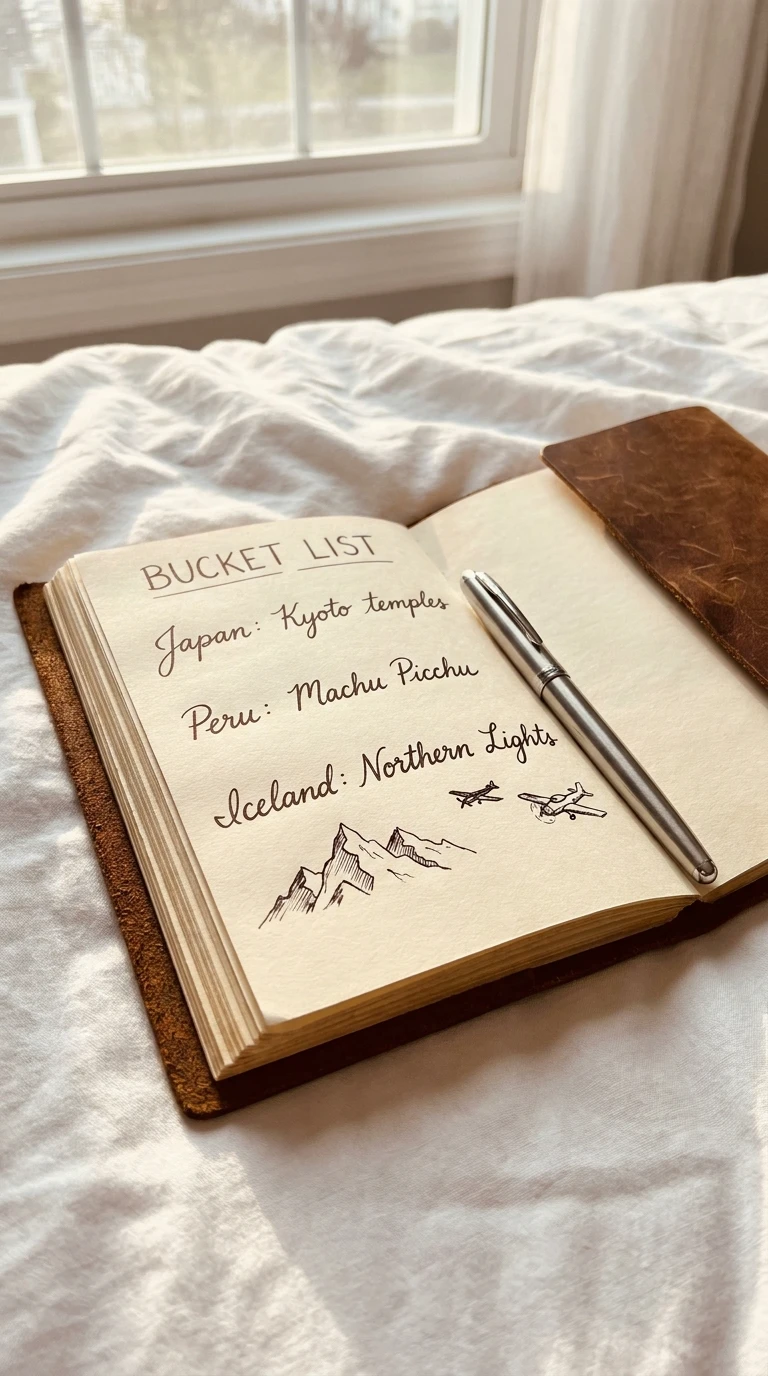 BUCKET LIST
Japan: Kyoto temples
Peru: Machu Picchu
Iceland: Northern Lights